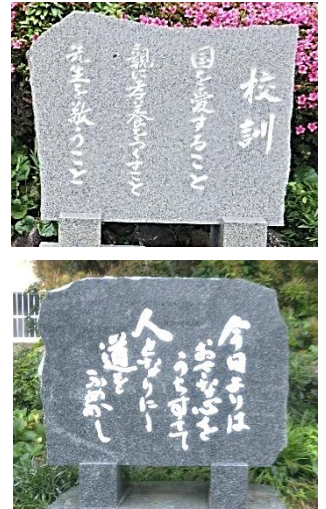 校訓
国を愛すること
親に孝養をつくすこと
先生を敬うこと
今日よりは
おさな心を
うちすてて
人となりにし
道を
ふめかし